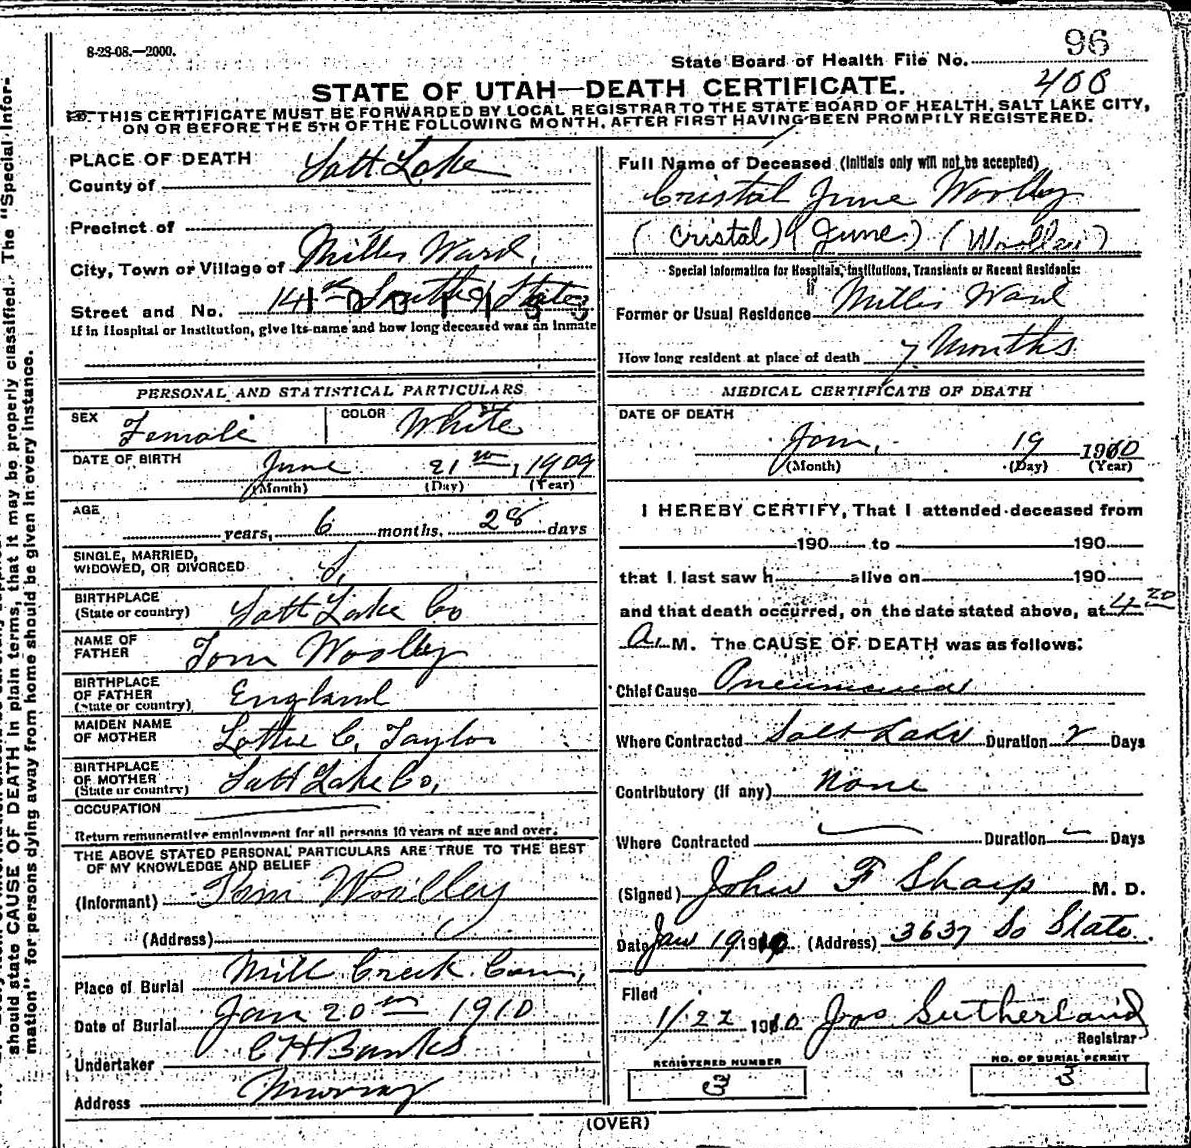 8-23-08.—2000.
96
State Board of Health File No.
400
STATE OF UTAH—DEATH CERTIFICATE.
THIS CERTIFICATE MUST BE FORWARDED BY LOCAL REGISTRAR TO THE STATE BOARD OF HEALTH, SALT LAKE CITY,
ON OR BEFORE THE 5TH OF THE FOLLOWING MONTH, AFTER FIRST HAVING BEEN PROMPILY REGISTERED.
PLACE OF DEATH
County of Salt Lake
Precinct of
City, Town or Village of Millis Ward,
Street and No. 14th South & State
If in Hospital or Institution, give its name and how long deceased was an inmate
Full Name of Deceased (Initials only will not be accepted)
Cristal June Woolley
(Cristal) (June) (Woolley)
Special Information for Hospitals, Institutions, Transients or Recent Residents:
Former or Usual Residence Millis Ward
How long resident at place of death 7 Months
PERSONAL AND STATISTICAL PARTICULARS
SEX Female COLOR White
DATE OF BIRTH June 21st, 1909
(Month) (Day) (Year)
AGE years, 6 months, 28 days
SINGLE, MARRIED,
WIDOWED, OR DIVORCED S.
BIRTHPLACE
(State or country) Salt Lake Co
NAME OF
FATHER Tom Woolley
BIRTHPLACE
OF FATHER
(State or country) England
MAIDEN NAME
OF MOTHER Lottie C. Taylor
BIRTHPLACE
OF MOTHER
(State or country) Salt Lake Co,
OCCUPATION
Return remunerative employment for all persons 10 years of age and over.
THE ABOVE STATED PERSONAL PARTICULARS ARE TRUE TO THE BEST
OF MY KNOWLEDGE AND BELIEF
(Informant) Tom Woolley
(Address)
Place of Burial Mill Creek Cem,
Date of Burial Jan 20th 1910
Undertaker C H Banks
Address Murray
MEDICAL CERTIFICATE OF DEATH
DATE OF DEATH
Jan, 19 1910
(Month) (Day) (Year)
I HEREBY CERTIFY, That I attended deceased from
190 to 190
that I last saw h alive on 190
and that death occurred, on the date stated above, at 4 20
A. M. The CAUSE OF DEATH was as follows:
Chief Cause Pneumonia
Where Contracted Salt Lake Duration 2 Days
Contributory (if any) None
Where Contracted Duration Days
(Signed) John F Sharp M. D.
Date Jan 19 1910 (Address) 3637 So State.
Filed
1/22 1910 Jas. Sutherland
Registrar
REGISTERED NUMBER
3
NO. OF BURIAL PERMIT
3
(OVER)
should state CAUSE OF DEATH in plain terms, that it may be properly classified. The "Special Infor-
mation" for persons dying away from home should be given in every instance.